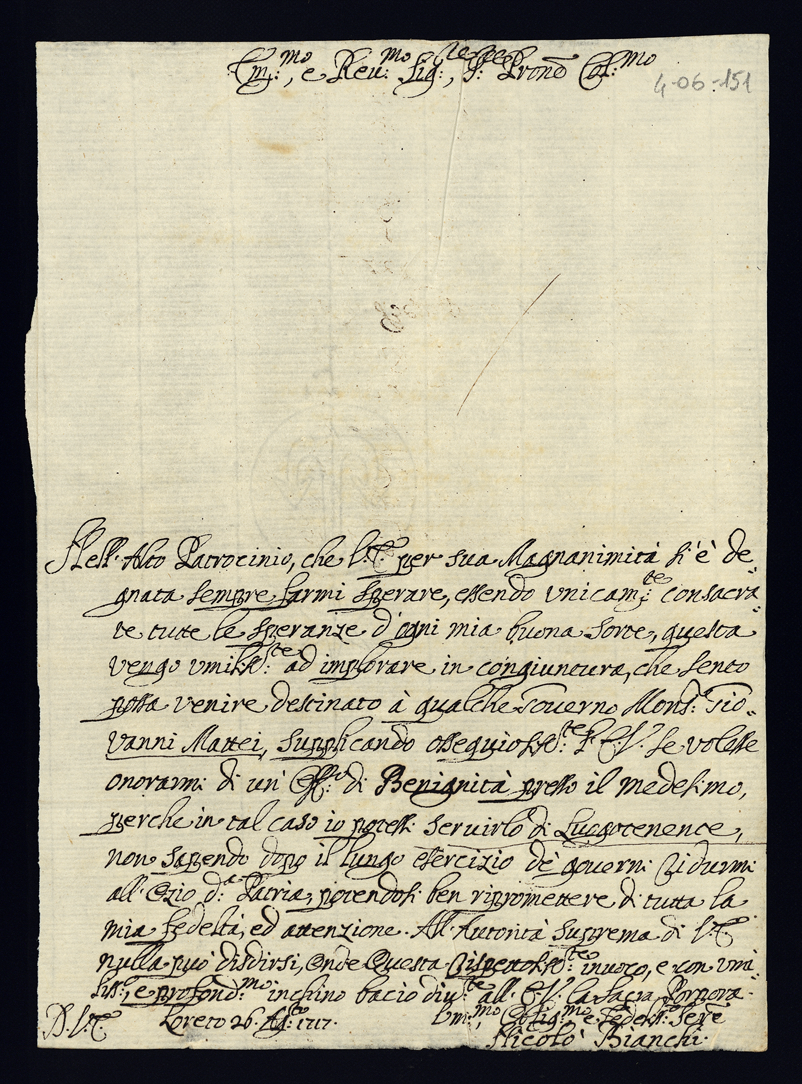 Em.mo, e Reu.mo Sig.re, P.re Pron̄o Col.mo
4-06-151
Nell'Alto Patrocinio, che l'E.V. per sua Magnanimità s'è de
gnata sempre farmi sperare, essendo unicam.te consacra=
te tutte le speranze d'ogni mia buona sorte, questa
vengo umiliss.te ad implorare in congiuntura, che sento
possa venire destinato à qualche Governo Mons.r Gio=
vanni Mattei, supplicando ossequioss.te l'E.V. se volesse
onorarmi di un' Eff.o di Benignità presso il medesimo,
perche in tal caso io potessi servirlo di Luogotenente,
non sapendo dopo il lungo esercizio de' governi ridurmi
all'Ozio d.a Patria, potendosi ben ripromettere di tutta la
mia fedeltà, ed attenzione. All'Autorità suprema di V.E.
nulla può disdirsi, onde Questa rispettoss.te invoco, e con umi
liss.o, e profond.mo inchino bacio div.te all'E.V. la Sacra Porpora.
D.V.E.
Loreto 26. Ag.to 1717.
Um.mo, e fedeliss. Serē
Nicolò Bianchi.